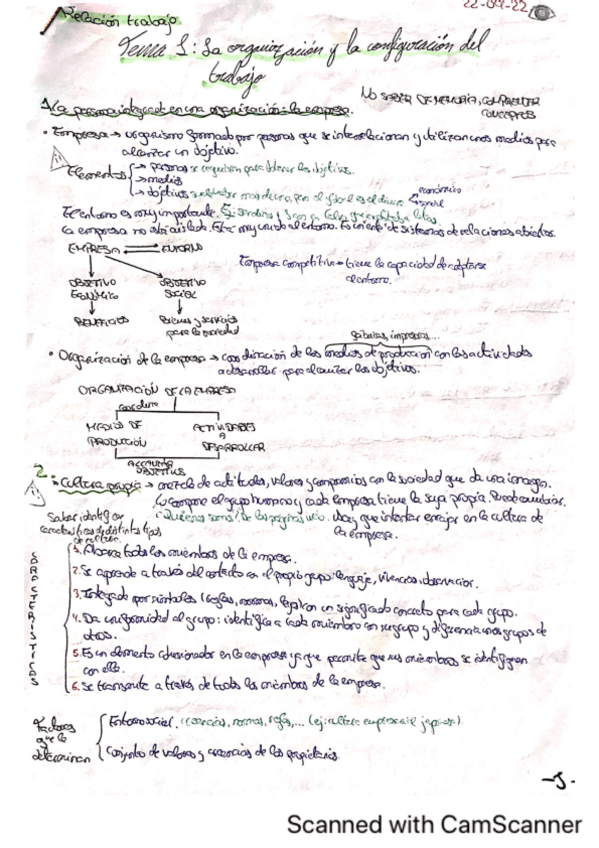 Relación trabajo
22-09-22
Tema 1: La organización y la configuración del
trabajo
NO SABER DE MEMORIA, COMPRENDER
CONCEPTOS
1. La persona integrada en una organización: la empresa.
• Empresa → organismo formado por personas que se interrelacionan y utilizan unos medios para
alcanzar un objetivo.
Elementos
→ personas se organizan para obtener los objetivos.
→ medios
→ objetivos
económico
social
El entorno es muy importante.
la empresa no está aislada. Está muy unida al entorno. de sistemas de relaciones abiertas.
EMPRESA ENTORNO
Empresa competitiva → tiene la capacidad de adaptarse
al entorno.
OBJETIVO
ECONÓMICO
OBJETIVO
SOCIAL
BENEFICIOS
Bienes y servicios
para la sociedad
impresoras...
• Organización de la empresa → coordinación de los medios de producción con las actividades
a desarrollar para alcanzar los objetivos.
ORGANIZACIÓN DE LA EMPRESA
coordina
MEDIOS DE
PRODUCCIÓN
ACTIVIDADES
A
DESARROLLAR
ALCANZAR
OBJETIVOS
2. • Cultura propia → mezcla de actitudes, valores y compromisos con la sociedad que da una imagen.
Lo compone el grupo humano y cada empresa tiene la suya propia. Puede cambiar.
"Quienes somos" de las páginas web. Hay que intentar encajar en la cultura de
la empresa.
Saber identificar
características distintos tipos
de cultura.
CARACTERÍSTICAS
1. Abarca todos los miembros de la empresa.
2. Se aprende a través del contacto en el propio grupo: lenguaje, vivencias, observación.
3. Integrada por símbolos (reglas, normas, ) con un significado concreto para cada grupo.
4. Da uniformidad al grupo: identifica a cada miembro con su grupo y diferencia unos grupos de
otros.
5. Es un elemento cohesionador en la empresa ya que permite que sus miembros se identifiquen
con ella.
6. Se transmite a través de todos los miembros de la empresa.
Factores
que la
determinan
Entorno social: creencias, normas, reglas,... (ej: cultura empresarial japonesa).
Conjunto de valores y creencias de los propietarios.
-1-
Scanned with CamScanner